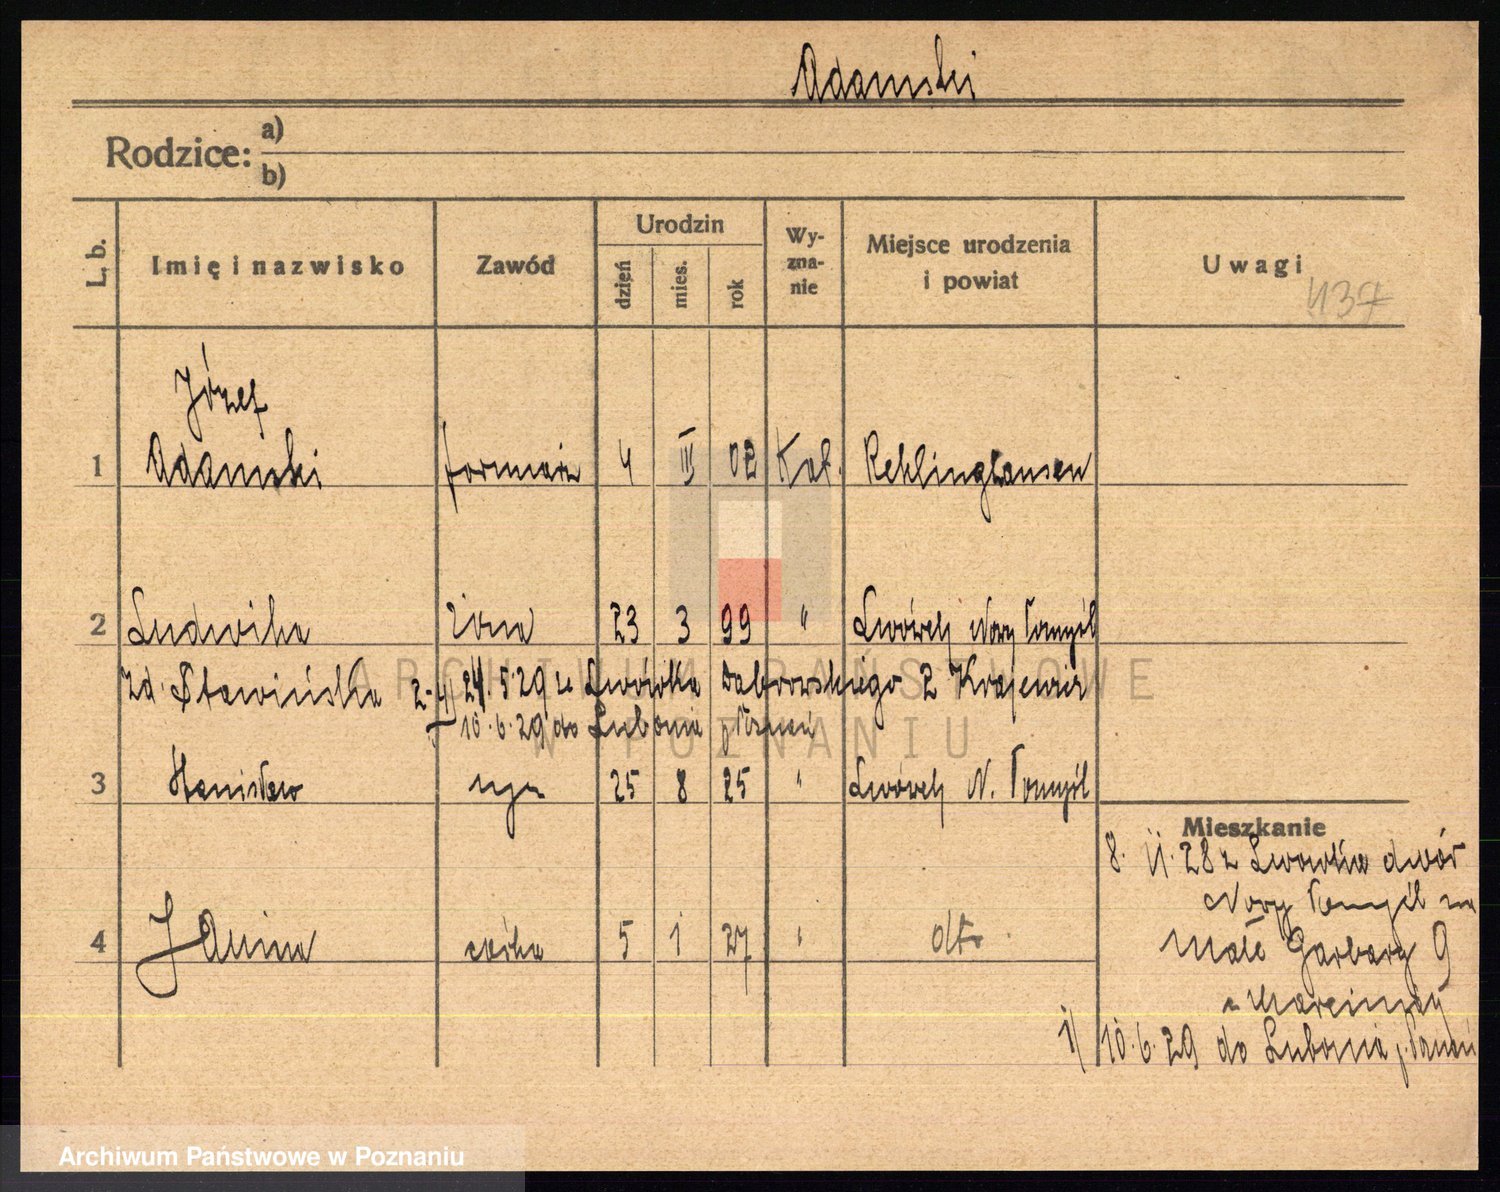 Adamski
Rodzice:
a)
b)
L. b.
Imię i nazwisko
Zawód
Urodzin
dzień
mies.
rok
Wy-
zna-
nie
Miejsce urodzenia
i powiat
Uwagi
437
Józef
1 Adamski formierz 4 III 02 Kat. Reklinghausen
2 Ludwika żona 23 3 99 " Lwówek Nowy Tomyśl
zd. Stawińska 2-4) 24.5.29 z Lwówka Dąbrowskiego 2 Krajewicz
10.6.29 do Lubonia p. Poznań
3 Stanisław syn 25 8 25 " Lwówek N. Tomyśl
Mieszkanie
8. II. 28 z Lwówka dwór
Nowy Tomyśl na
4 Janina córka 5 1 27 " dto
Małe Garbary 9
1) 10.6.29 do Lubonia p. Poznań
ARCHIWUM PAŃSTWOWE
W POZNANIU
Archiwum Państwowe w Poznaniu